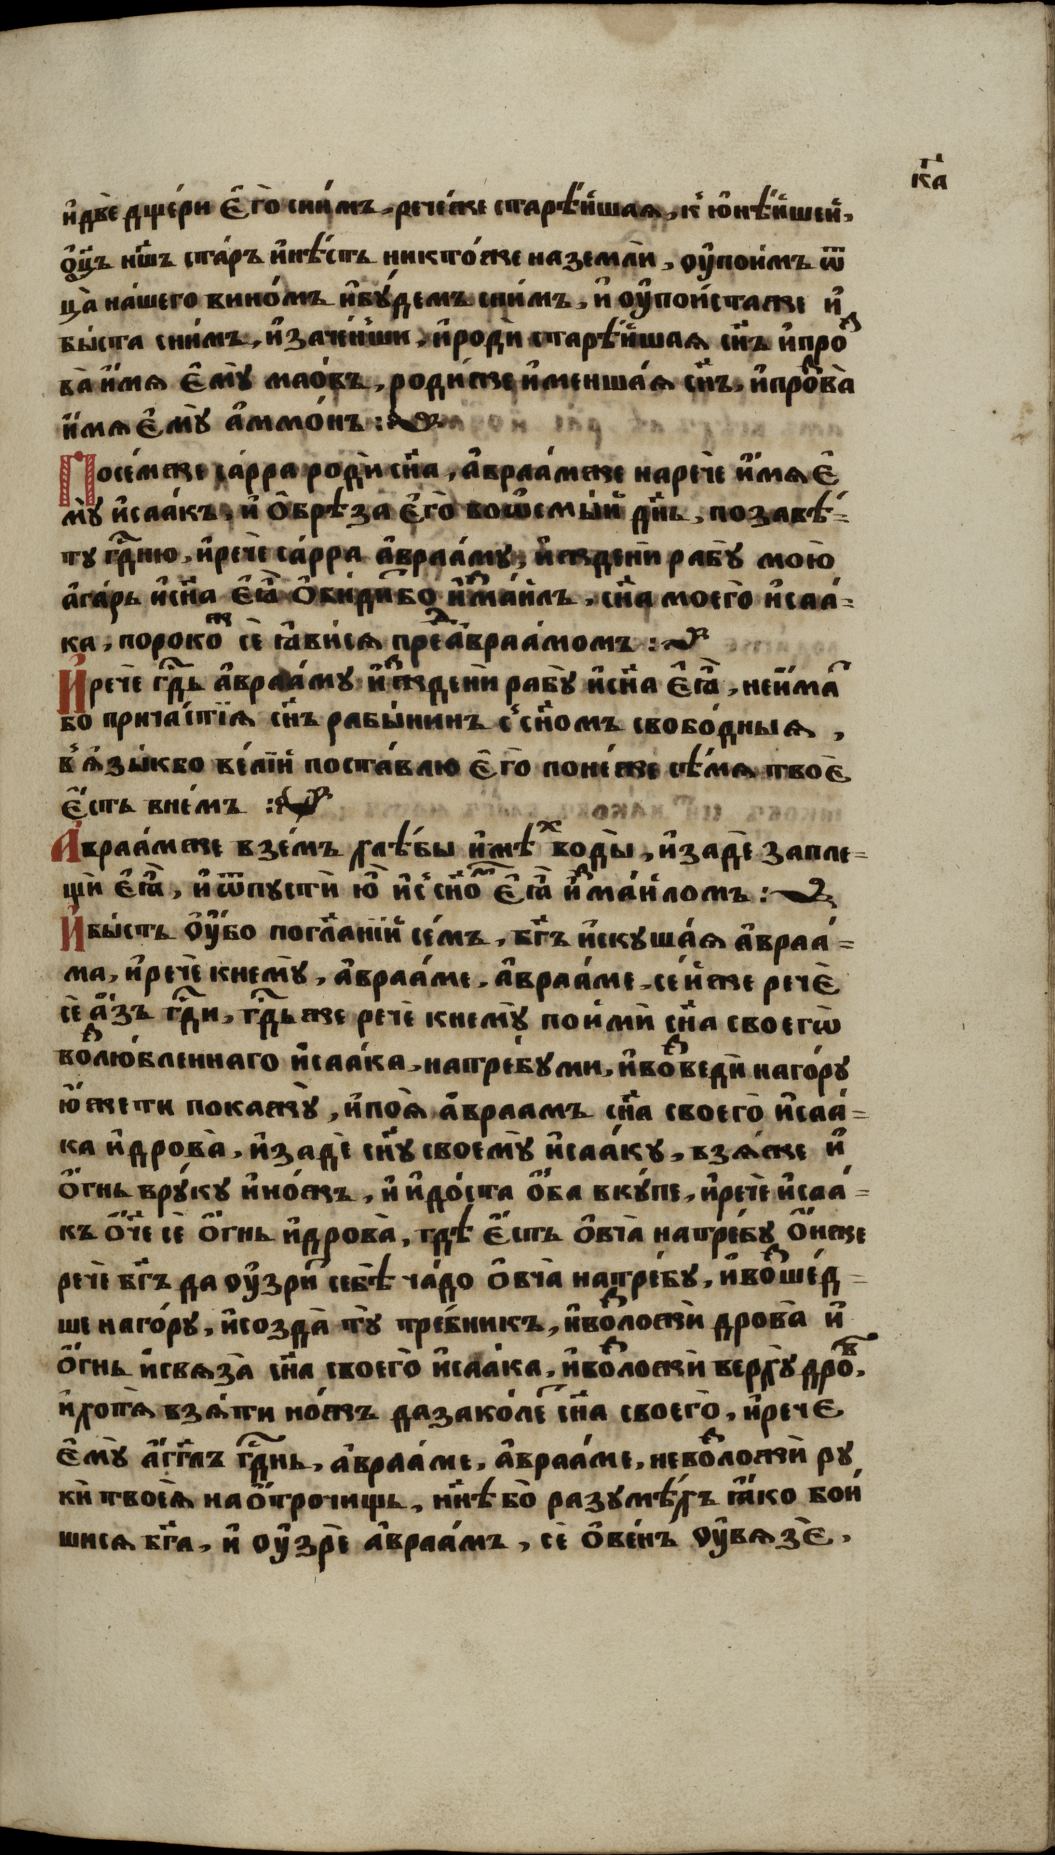 к҃а
и҆двѐ дще́ри є҆го̀ сни́мъ, рече́же старѣ́йшая, к ю҆нѣ́йшей,
ѻ҆ц҃ъ нш҃ъ ста́ръ и҆нѣ́сть никто́же наземлѝ, оу҆пои́мъ ѿ
ца̀ на́шего вино́мъ и҆бу́демъ сни́мъ, и҆ оу҆пои́стаже и҆
бы́ста сни́мъ, и҆зачє́нши, и҆родѝ старѣ́йшая сн҃ъ и҆проⷥ
ва̀ и҆́мя є҆мꙋ̀ мао́въ, роди́же и҆менша́я сн҃ъ, и҆проⷥва̀
и҆́мя є҆мꙋ̀ а҆ммо́нъ :
Посе́мже са́рра родѝ сн҃а, а҆враа́мже наречѐ и҆́мя є҆
мꙋ̀ и҆саа́къ, и҆ ѻ҆брѣ́за є҆го̀ воѡсмы́й дн҃ь, позавѣ́=
ту гд҃ню, и҆речѐ са́рра а҆враа́му, и҆жденѝ рабꙋ̀ мою̀
а҆га́рь и҆сн҃а є҆ѧ̀ ѻ҆би́дитбо и҆ⷥма́илъ, сн҃а моего̀ и҆саа́=
ка, порокоⷤ сѐ ꙗ҆ви́ся преⷣа҆враа́момъ :
И҆речѐ гд҃ь а҆враа́му и҆жденѝ рабꙋ̀ и҆сн҃а є҆ѧ̀, неи́маⷮ
бо прича́стїя сн҃ъ рабы́нинъ с сн҃омъ свобо́дныя,
в ꙗ҆зы́кбо ве́лїй поста́влю є҆го̀ поне́же сѣ́мя твоѐ
є҆́сть вне́мъ :
А҆враа́мже взе́мъ хлѣ́бы и҆мѣⷯ воды̀, и҆задѐ запле=
щѝ є҆ѧ̀, и҆ѿпустѝ ю҆̀ и҆с сн҃оⷨ є҆ѧ̀ и҆ⷥма́иломъ :
И҆бы́сть оу҆̀бо погл҃а́нїй се́мъ, бг҃ъ и҆скуша́я а҆враа́=
ма, и҆речѐ кнемꙋ̀, а҆враа́ме, а҆враа́ме, се́йже речѐ
сѐ а҆́зъ гд҃и, гд҃ьже речѐ кнемꙋ̀ поимѝ сн҃а своегѡ
воⷥлю́бленнаго и҆саа́ка, натре́буми, и҆воⷥведѝ наго́ру
ю҆́жети покажꙋ̀, и҆поя̀ а҆враамъ сн҃а своего̀ и҆саа́=
ка и҆дрова̀, и҆задѐ сн҃у своемꙋ̀ и҆саа́ку, взя́же и҆
ѻ҆́гнь врꙋ́ку и҆но́жъ, и҆ и҆до́ста ѻ҆́ба вку́пе, и҆речѐ и҆саа́=
къ ѻ҆́ч҃е сѐ ѻ҆́гнь и҆дрова̀, гдѣ́ є҆́сть ѻ҆вча̀ натре́бу ѻ҆́нже
речѐ бг҃ъ да оу҆́зриⷮ себѣ̀ ча́до ѻ҆вча̀ натре́бу, и҆воⷥше́д=
ше наго́ру, и҆созда̀ тꙋ̀ тре́бникъ, и҆воⷥложѝ дрова̀ и҆
ѻ҆́гнь и҆связа̀ сн҃а своего̀ и҆саа́ка, и҆воⷥложѝ верхꙋ̀ дроⷡ,
и҆хотя̀ взя́ти но́жъ дазако́леⷮ сн҃а своего̀, и҆речѐ
є҆мꙋ̀ а҆́гг҃лъ гд҃нь, а҆враа́ме, а҆враа́ме, невоⷥложѝ ру
кѝ твоея̀ наѻ҆́трочищь, нн҃ѣ́ бо̀ разумѣ́хъ ꙗ҆́ко бои́
шися бг҃а, и҆ оу҆зрѐ а҆враа́мъ, сѐ ѻ҆ве́нъ оу҆вязѐ,